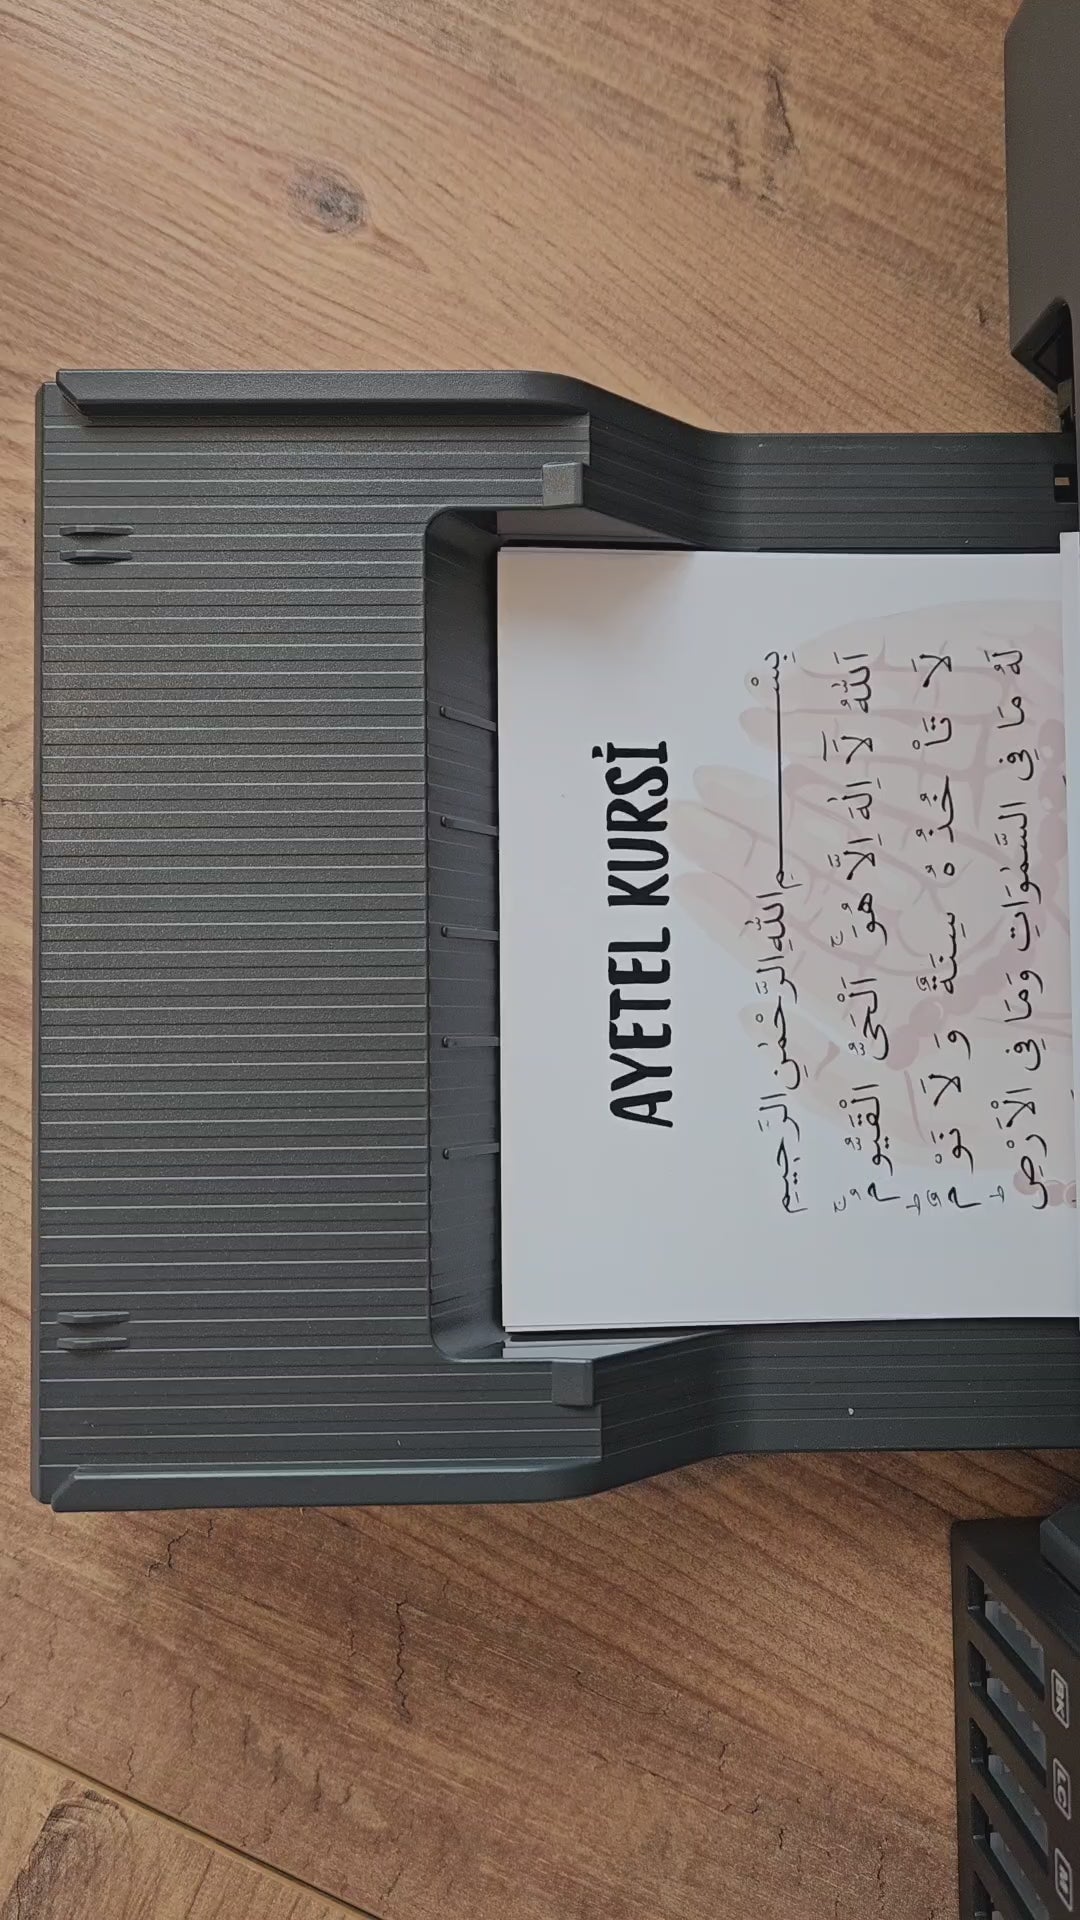 AYETEL KURSİ
بِسْــــــــمِ اللهِ الرَّحْمٰنِ الرَّحِيمِ
اَللّٰهُ لَٓا اِلٰهَ اِلَّا هُوَۚ اَلْحَيُّ الْقَيُّومُۚ
لَا تَأْخُذُهُ سِنَةٌ وَلَا نَوْمٌۜ
لَهُ مَا فِي السَّمٰوَاتِ وَمَا فِي الْاَرْضِۜ
BK
LC
M